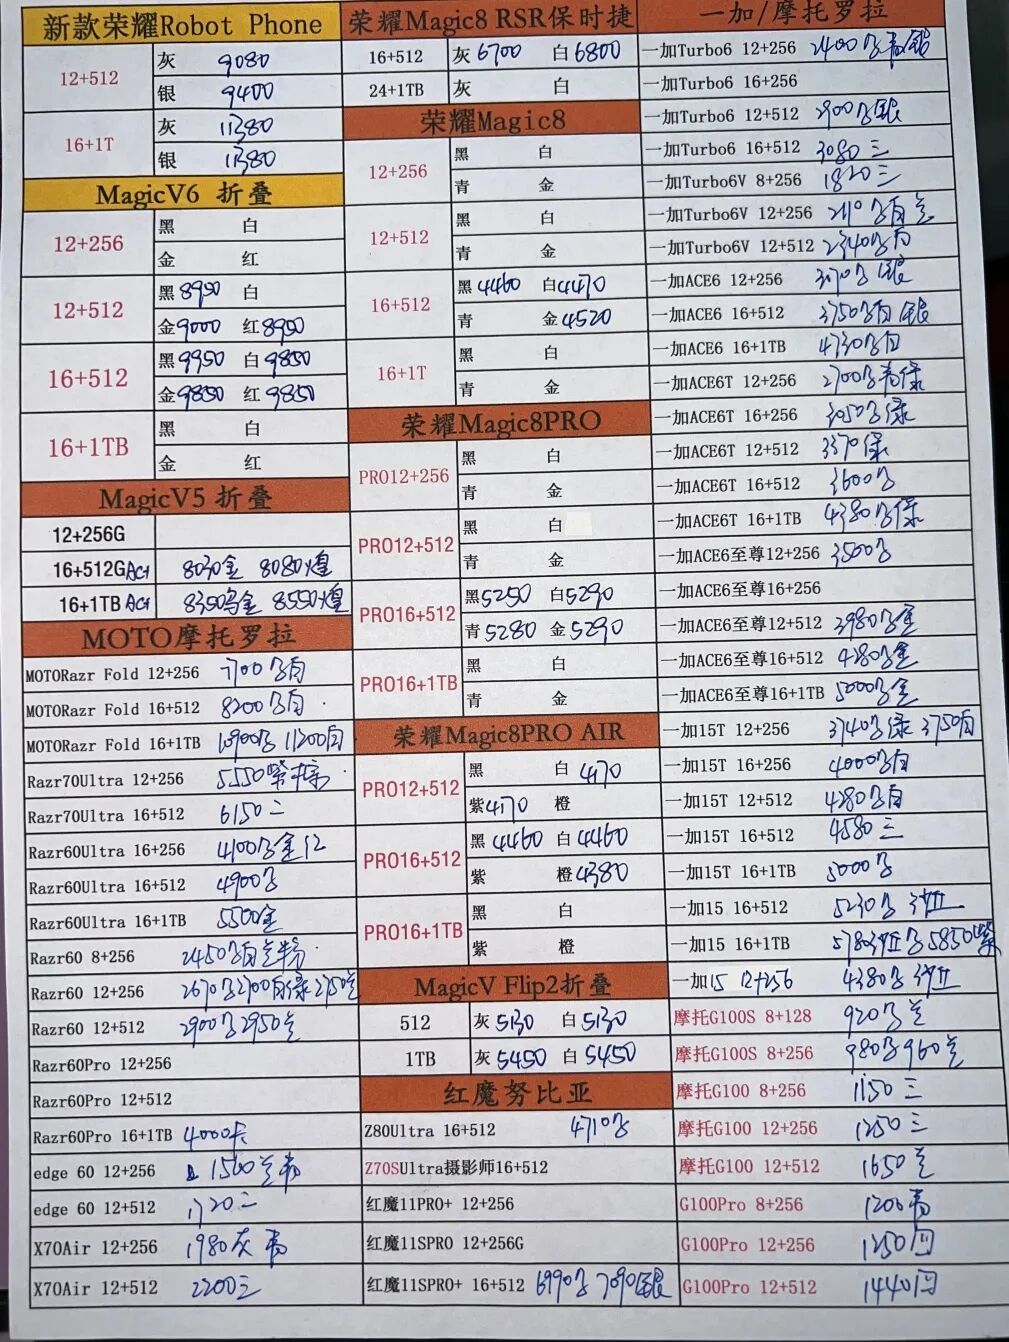 新款荣耀Robot Phone
12+512
灰 9080
银 9400
16+1T
灰 11380
银 11380
MagicV6 折叠
12+256
黑 白
金 红
12+512
黑8950 白
金9000 红8950
16+512
黑9950 白9850
金9850 红9850
16+1TB
黑 白
金 红
MagicV5 折叠
12+256G
16+512G Act 8030金 8080煌
16+1TB Act 8350乌金 8550煌
MOTO摩托罗拉
MOTORazr Fold 12+256 7700 白
MOTORazr Fold 16+512 8200 白
MOTORazr Fold 16+1TB 10900 11200白
Razr70Ultra 12+256 5550紫
Razr70Ultra 16+512 6150三
Razr60Ultra 16+256 4100 金红
Razr60Ultra 16+512 4900
Razr60Ultra 16+1TB 5500金
Razr60 8+256 2450 白兰粉
Razr60 12+256 2670 2700白绿 2750兰
Razr60 12+512 2900 2950兰
Razr60Pro 12+256
Razr60Pro 12+512
Razr60Pro 16+1TB 4000卡
edge 60 12+256 1500兰青
edge 60 12+512 1720三
X70Air 12+256 1980灰青
X70Air 12+512 2200三
荣耀Magic8 RSR保时捷
16+512 灰6700 白6800
24+1TB 灰 白
荣耀Magic8
12+256
黑 白
青 金
12+512
黑 白
青 金
16+512
黑4460 白4470
青 金4520
16+1T
黑 白
青 金
荣耀Magic8PRO
PRO12+256
黑 白
青 金
PRO12+512
黑 白
青 金
PRO16+512
黑5250 白5290
青5280 金5290
PRO16+1TB
黑 白
青 金
荣耀Magic8PRO AIR
PRO12+512
黑 白4170
紫4170 橙
PRO16+512
黑4460 白4460
紫 橙4380
PRO16+1TB
黑 白
紫 橙
MagicV Flip2折叠
512 灰5130 白5130
1TB 灰5450 白5450
红魔努比亚
Z80Ultra 16+512 4710
Z70SUltra摄影师16+512
红魔11PRO+ 12+256
红魔11SPRO 12+256G
红魔11SPRO+ 16+512 6990 7090银
一加/摩托罗拉
一加Turbo6 12+256 2400 银
一加Turbo6 16+256
一加Turbo6 12+512 2900 银
一加Turbo6 16+512 3080三
一加Turbo6V 8+256 1820三
一加Turbo6V 12+256 白兰
一加Turbo6V 12+512 2340 白
一加ACE6 12+256 银
一加ACE6 16+512 3750 白银
一加ACE6 16+1TB 4730 白
一加ACE6T 12+256 2700 绿
一加ACE6T 16+256 3050 绿
一加ACE6T 12+512 3370绿
一加ACE6T 16+512 3600
一加ACE6T 16+1TB 4380 绿
一加ACE6至尊12+256 3500
一加ACE6至尊16+256
一加ACE6至尊12+512 3980 金
一加ACE6至尊16+512 4280 金
一加ACE6至尊16+1TB 5000 金
一加15T 12+256 3740 绿 3750白
一加15T 16+256 4000 白
一加15T 12+512 4280 白
一加15T 16+512 4580三
一加15T 16+1TB 5000
一加15 16+512 5230
一加15 16+1TB 5780 5850紫
一加15 12+256 4380
摩托G100S 8+128 920 兰
摩托G100S 8+256 980 960兰
摩托G100 8+256 1150三
摩托G100 12+256 1250三
摩托G100 12+512 1650兰
G100Pro 8+256 1200青
G100Pro 12+256 1250
G100Pro 12+512 1440